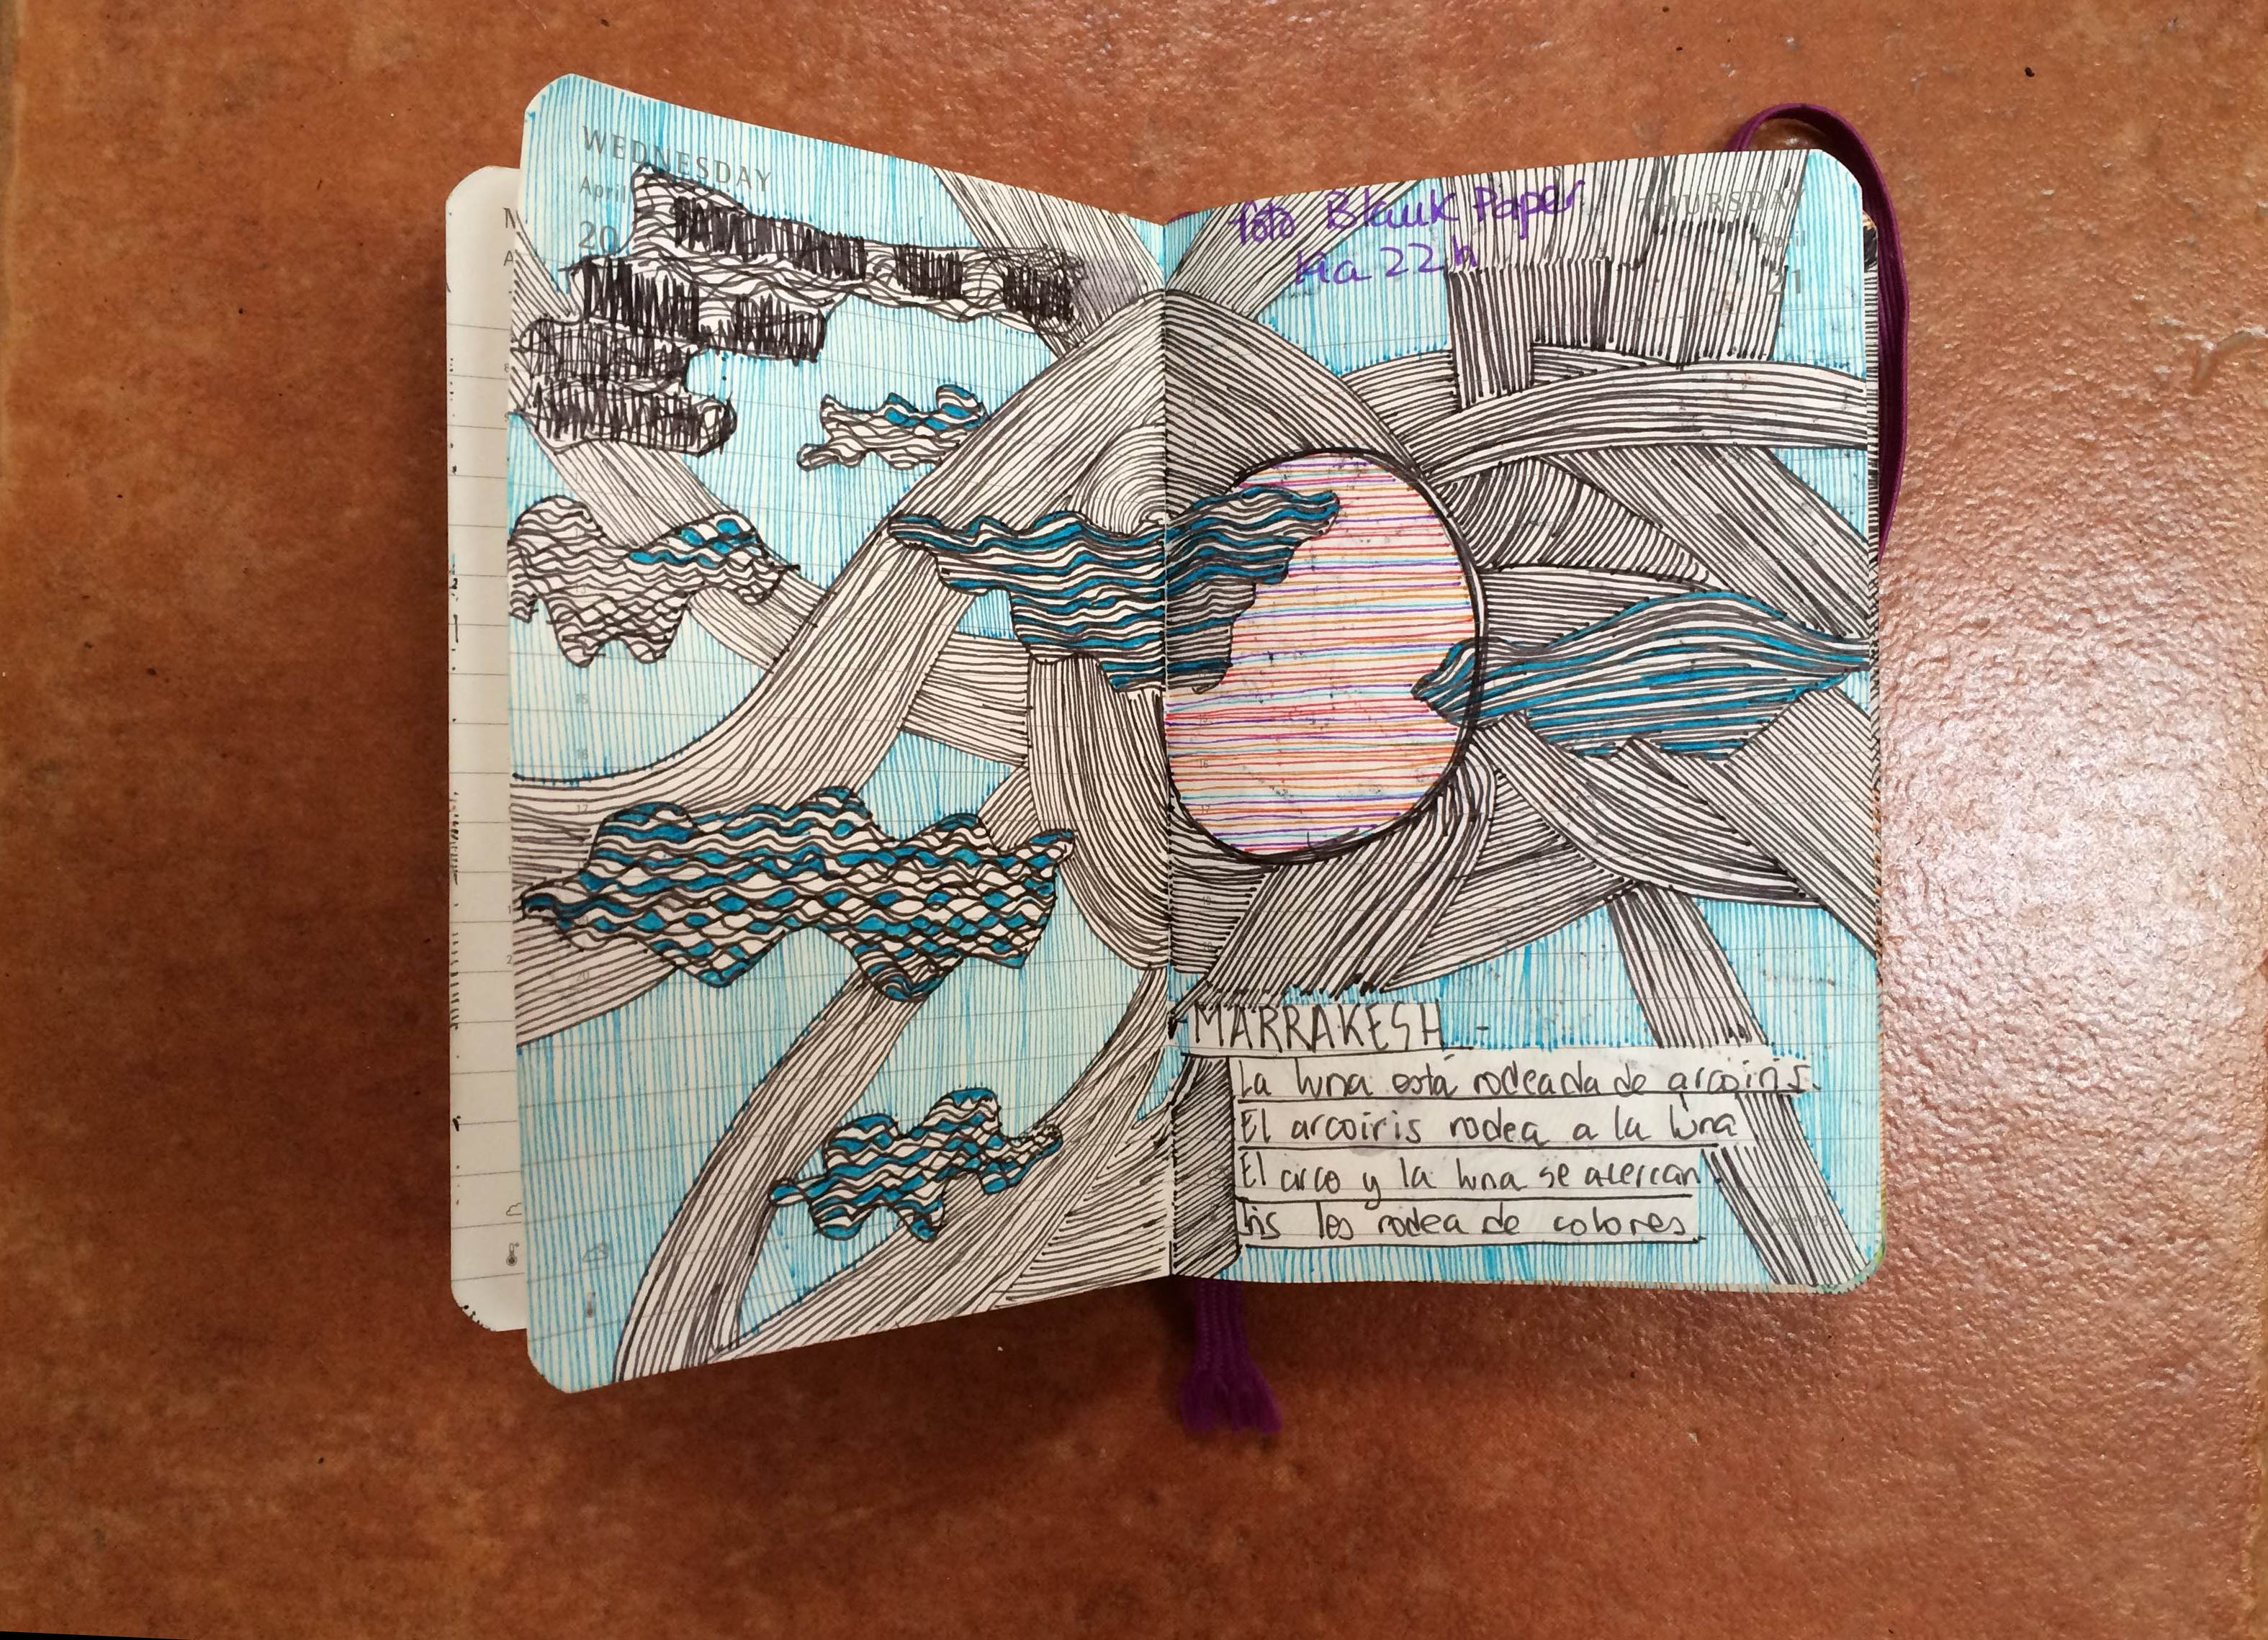 WEDNESDAY
April
20
THURSDAY
April
21
foto Blank Paper
22h
MARRAKESH -
La luna está rodeada de arcoiris.
El arcoiris rodea a la luna
El arco y la luna se acercan
Iris les rodea de colores.